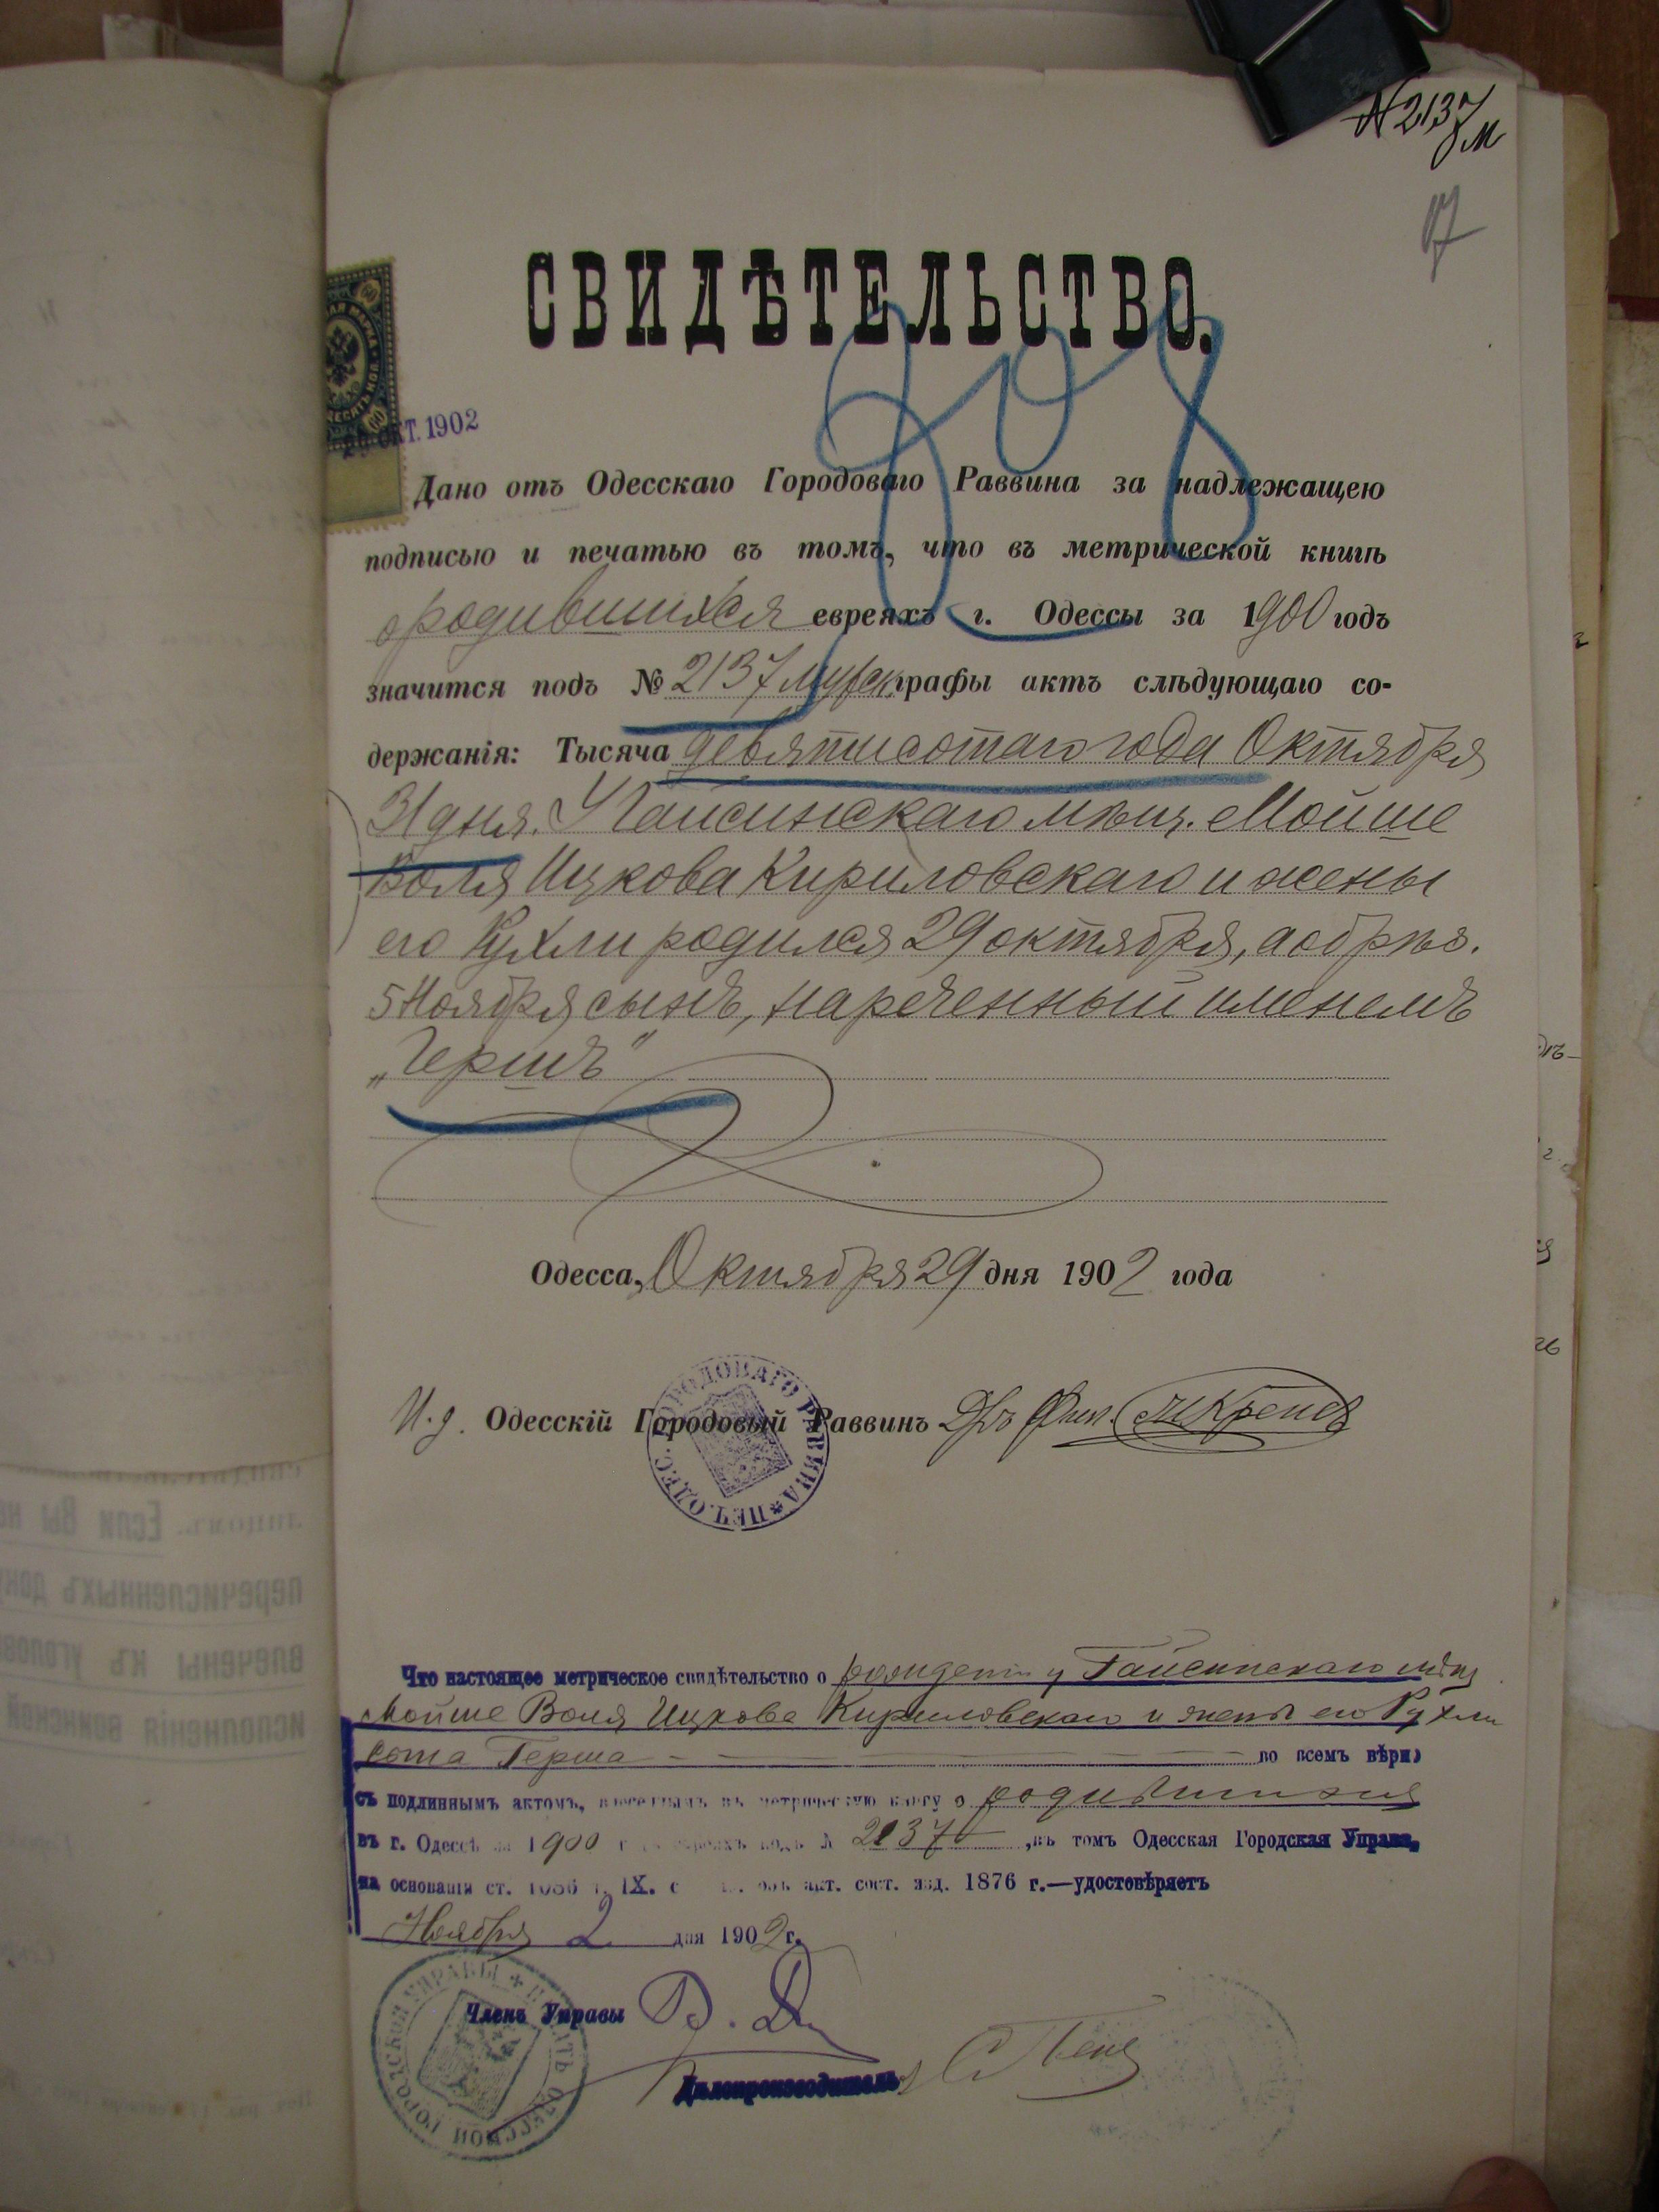 № 2137
М
17
СВИДѢТЕЛЬСТВО.
60
60
ОКТ. 1902
Дано отъ Одесскаго Городоваго Раввина за надлежащею
подписью и печатью въ томъ, что въ метрической книгѣ
о родившихся евреяхъ г. Одессы за 1900 годъ
значится подъ № 2137 мужск. графы актъ слѣдующаго со-
держанія: Тысяча девятисотаго года Октября
31 дня. У Гайсинскаго мѣщ. Мойше
Воля Ицкова Кириловскаго и жены
его Рухли родился 29 октября, а обрѣз.
5 Ноября сынъ, нареченный именемъ
„Гершъ“
Одесса, Октября 29 дня 1902 года
И. д. Одесскій Городовый Раввинъ Д-ръ Фил.
ПЕЧ. ОДЕС. ГОРОДОВАГО РАВВИНА
Что настоящее метрическое свидѣтельство о рожденіи у Гайсинскаго мѣщ
Мойше Воля Ицкова Кириловскаго и жены его Рухли
сына Герша во всемъ вѣрно
съ подлиннымъ актомъ, внесеннымъ въ метрическую книгу о родившихся
въ г. Одессѣ за 1900 г. о евреяхъ подъ № 2137, въ томъ Одесская Городская Управа,
на основаніи ст. 1086 т. IX. объ акт. сост. изд. 1876 г.—удостовѣряетъ
Ноября 2 дня 1902 г.
Членъ Управы
Дѣлопроизводитель
ПЕЧАТЬ ОДЕССКОЙ ГОРОДСКОЙ УПРАВЫ